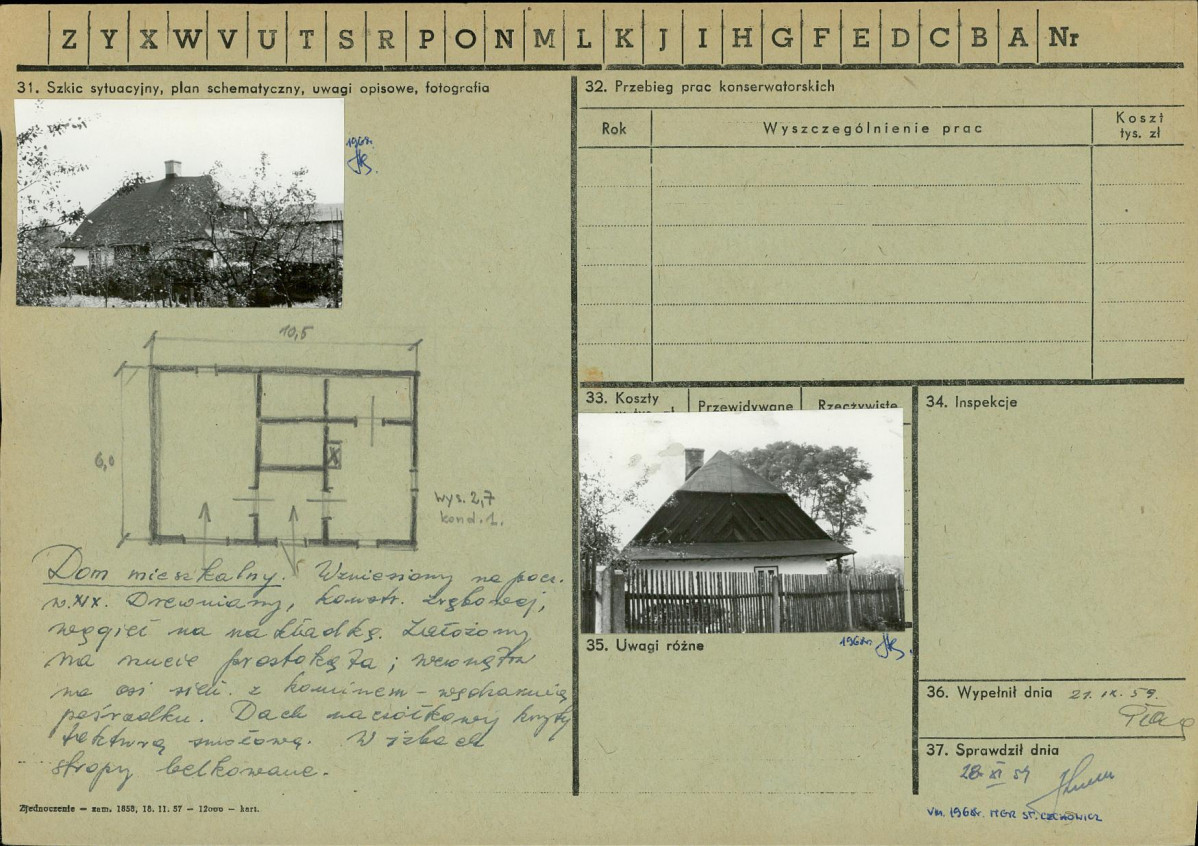 Z Y X W V U T S R P O N M L K J I H G F E D C B A Nr
31. Szkic sytuacyjny, plan schematyczny, uwagi opisowe, fotografia
1968r.
10,5
6,0
wys. 2,7
kond. 1.
Dom mieszkalny. Wzniesiony na pocz.
w. XIX. Drewniany, konstr. zrębowej,
węgieł na nakładkę. Założony
na rzucie prostokąta; wewnątrz
na osi sień z kominem – wędzarnią
pośrodku. Dach naczółkowy kryty
tekturą smołową. W izbach
stropy belkowane.
Zjednoczenie — zam. 1858, 18. 11. 57 — 12000 — kart.
32. Przebieg prac konserwatorskich
Rok Wyszczególnienie prac Koszt
tys. zł
33. Koszty
w tys. zł Przewidywane Rzeczywiste
34. Inspekcje
35. Uwagi różne
1968r.
36. Wypełnił dnia 21. IX. 59.
37. Sprawdził dnia
28 XI 59
VIII. 1968r. MGR ST. LECHOWICZ